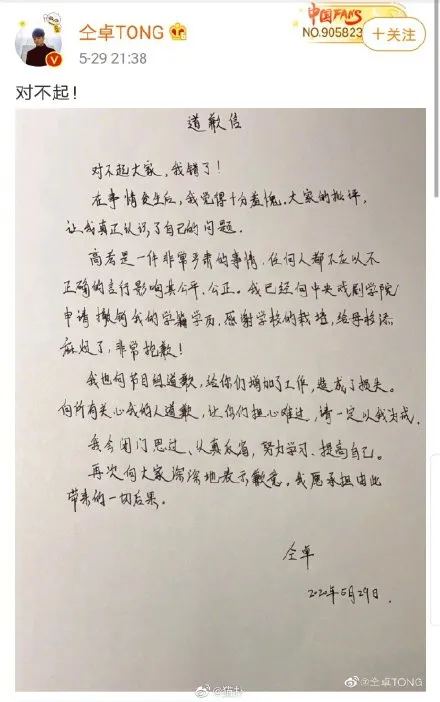 仝卓TONG
5-29 21:38
中国FANS
NO.905823
+关注
对不起！
道歉信
对不起大家，我错了！
在事情发生后，我觉得十分羞愧。大家的批评，
让我真正认识了自己的问题。
高考是一件非常严肃的事情，任何人都不应以不
正确的言行影响其公平、公正。我已经向中央戏剧学院
申请撤销我的学籍学历，感谢学校的栽培，给母校添
麻烦了，非常抱歉！
我也向节目组道歉，给你们增加了工作，造成了损失。
向所有关心我的人道歉，让你们担心难过，请一定以我为戒。
我会闭门思过、认真反省，努力学习、提高自己。
再次向大家深深地表示歉意。我愿承担由此
带来的一切后果。
仝卓
2020年5月29日.
@仝卓TONG